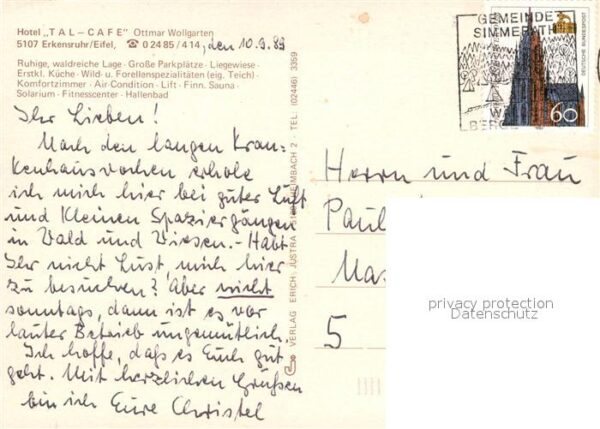 Hotel „TAL-CAFE" Ottmar Wollgarten
5107 Erkensruhr/Eifel, ☎ 0 24 85 / 4 14, den 10.9.89
Ruhige, waldreiche Lage · Große Parkplätze · Liegewiese ·
Erstkl. Küche · Wild- u. Forellenspezialitäten (eig. Teich) ·
Komfortzimmer · Air-Condition · Lift · Finn. Sauna ·
Solarium · Fitnesscenter · Hallenbad
Ihr Lieben!
Nach den langen Kran-
kenhauswochen erhole
ich mich hier bei guter Luft
und kleinen Spaziergängen
in Wald und Wiesen. - Habt
Ihr nicht Lust, mich hier
zu besuchen? Aber nicht
sonntags, dann ist es vor
lauter Betrieb ungemütlich.
Ich hoffe, daß es Euch gut
geht. Mit herzlichen Grüßen
bin ich Eure Christel
VERLAG ERICH JUSTRA HEIMBACH 2 · TEL: (02446) 3359
GEMEINDE
SIMMERATH
DEUTSCHE BUNDESPOST
60
Herrn und Frau
Paul
Mas
5
privacy protection
Datenschutz